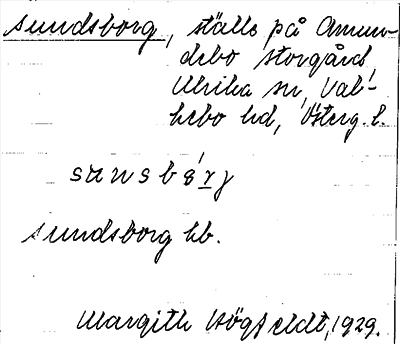 Sundsborg, ställe på Amun-
debo storgård,
Ulrika sn, Val-
kebo hd, Österg. l.
sunsbórj
Sundsborg kb.
Margith Högfeldt, 1929.